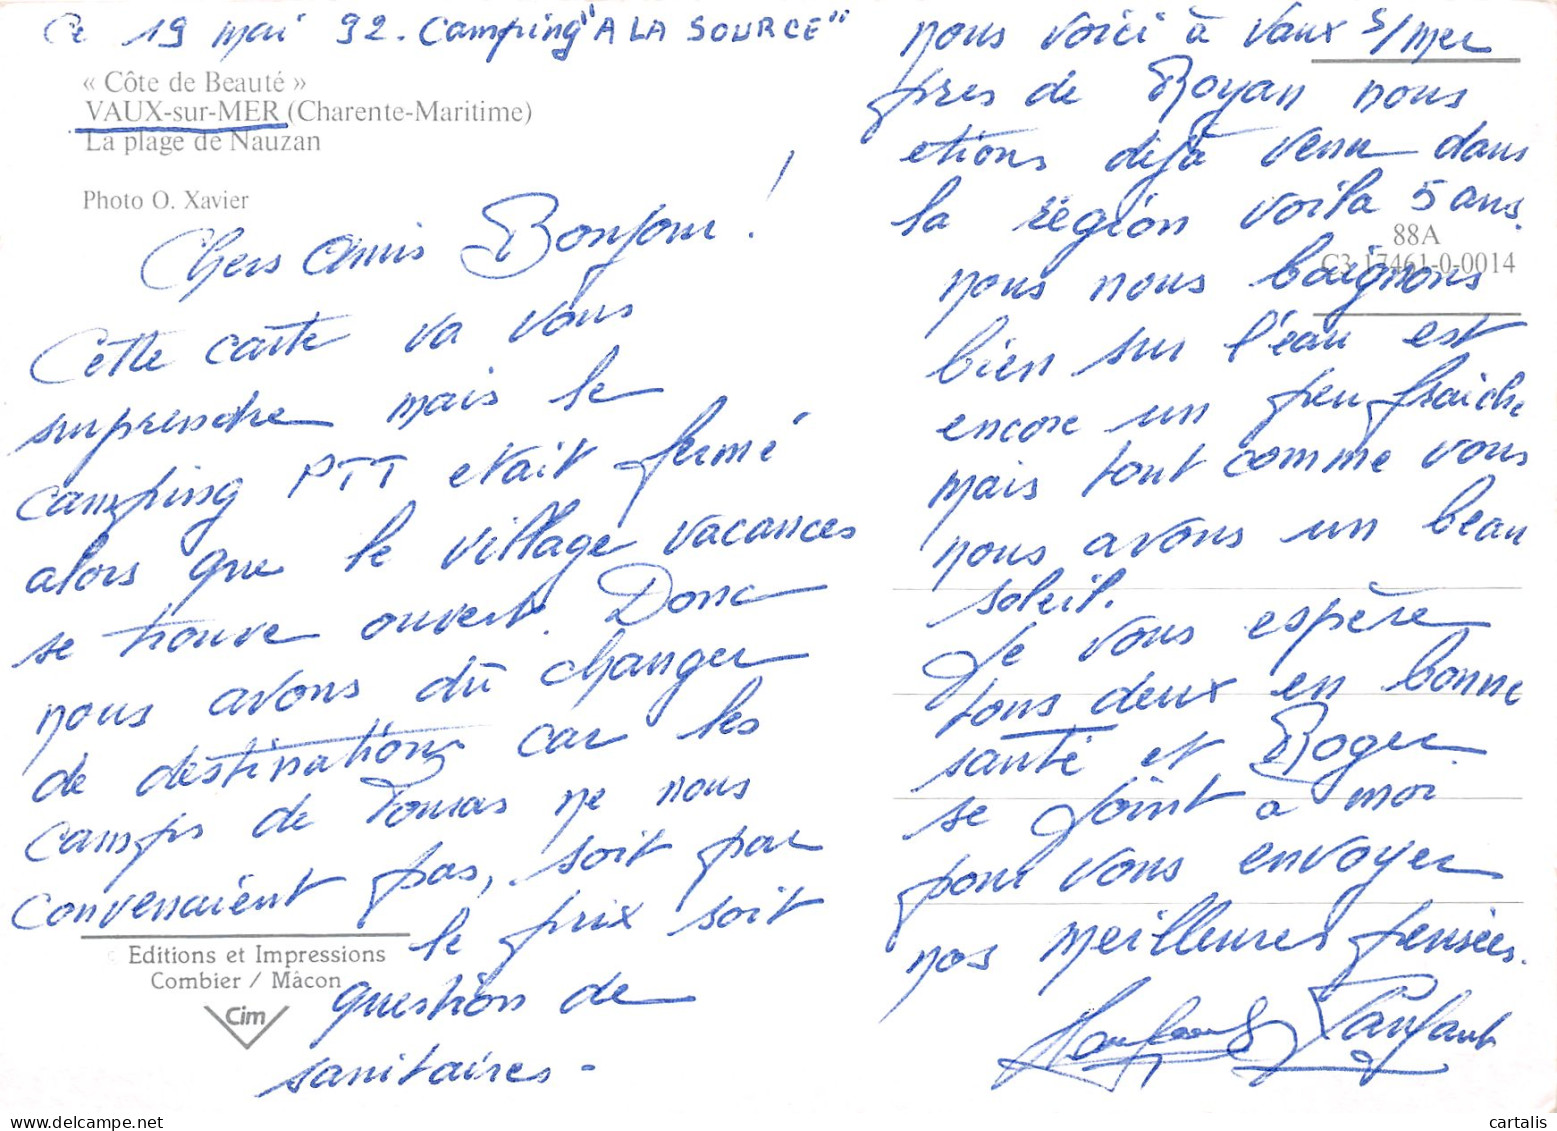 Ce 19 mai 92. Camping "A LA SOURCE"
« Côte de Beauté »
VAUX-sur-MER (Charente-Maritime)
La plage de Nauzan
Photo O. Xavier
Chers Amis Bonjour !
Cette carte va vous
surprendre mais le
camping PTT etait fermé
alors que le village vacances
se trouve ouvert. Donc
nous avons dû changer
de destinations car les
camps de ne nous
convenaient pas, soit par
le prix soit
question de
sanitaires -
Editions et Impressions
Combier / Mâcon
Cim
nous voici à Vaux s/mer
pres de Royan nous
etions dejà venu dans
la région voila 5 ans.
88A
C3 17461-0-0014
nous nous baignons
bien sur l'eau est
encore un peu fraiche
mais tout comme vous
nous avons un beau
soleil.
Je vous espère
tous deux en bonne
santé et Roger
se joint a moi
pour vous envoyer
nos meilleures pensées.
cartalis